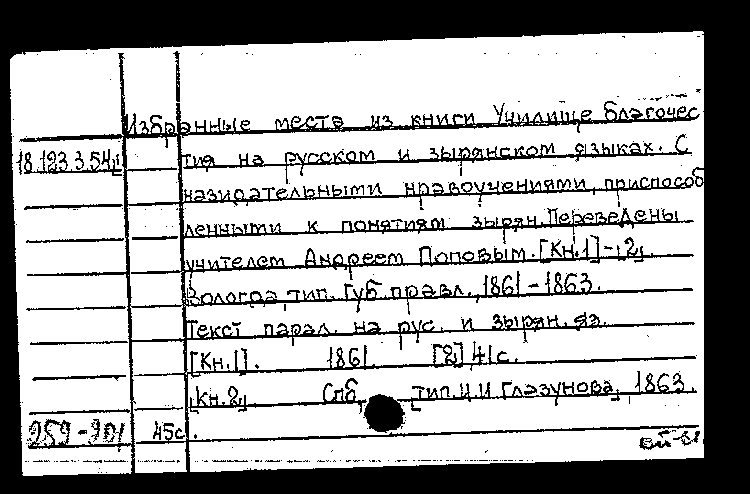 Избранные места из книги Училище благочес
18.123.3.54 тия на русском и зырянском языках. С
назидательными нравоучениями, приспособ
ленными к понятиям зырян. Переведены
учителем Андреем Поповым. [Кн.1]-[2].
Вологда, тип. Губ. правл., 1861-1863.
Текст парал. на рус. и зырян. яз.
[Кн.1]. 1861. [2] 41 с.
[Кн.2] Спб, тип. И.И. Глазунова, 1863.
45 с.